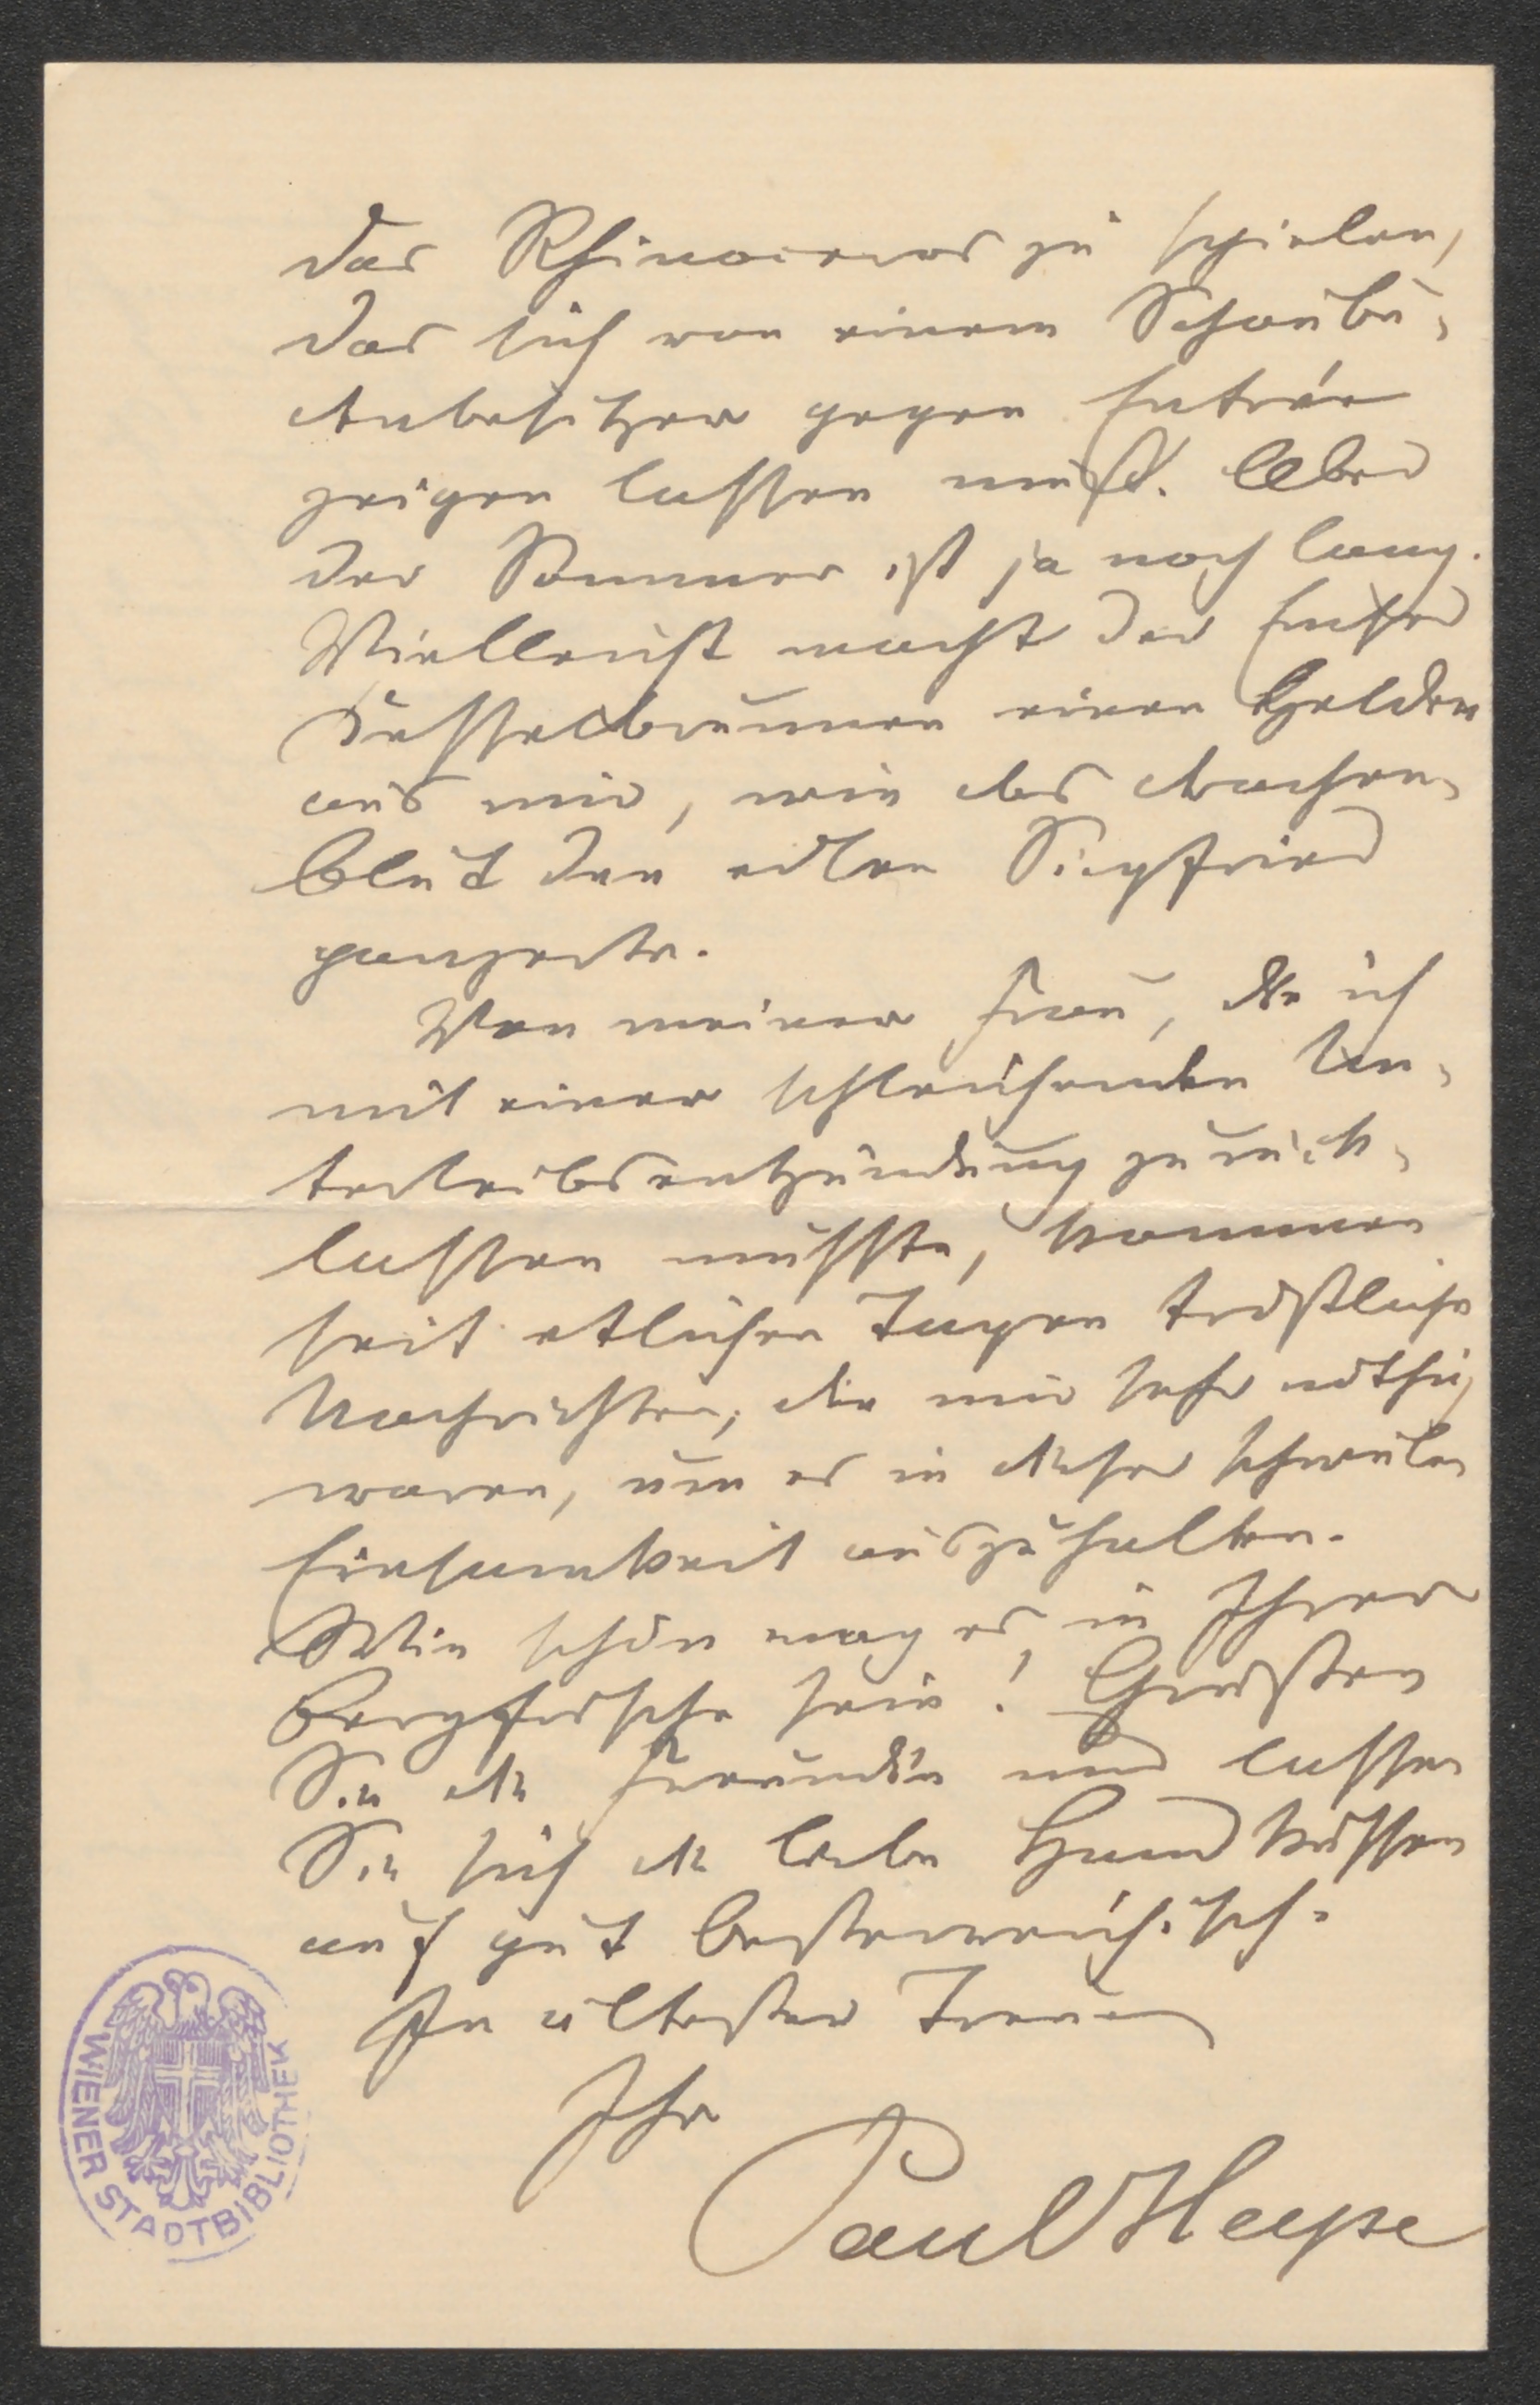 das Rhinoceros zu spielen,
das sich von einem Schaubu-
denbesitzer gegen Entrée
zeigen lassen muß. Aber
der Sommer ist ja noch lang.
Vielleicht macht der Emser
Kesselbrunnen einen Helden
aus mir, wie das Drachen-
blut den edlen Siegfried
panzerte.
Von meiner Frau, die ich
mit einer schleichenden Un-
terleibsentzündung zurück-
lassen mußte, kommen
seit etlichen Tagen tröstliche
Nachrichten, die mir sehr nöthig
waren, um es in dieser schwülen
Einsamkeit auszuhalten.
Wie schön mag es in Ihrer
Bergfrische sein! Grüßen
Sie die Freundin und lassen
Sie sich die liebe Hand küssen
auf gut oesterreichisch.
In ältester Treue
Ihr
Paul Heyse
WIENER STADTBIBLIOTHEK